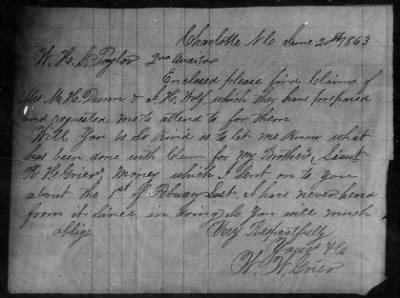 Charlotte N C June 20th 1863
W. H. S. Taylor 2nd Auditor
Enclosed please find Claims of
Mrs M. H. Dunn & J. H. Wolf which they have prepared
and requested me to attend to for them
Will you be so kind as to let me know what
has been done with Claim for my Brother's, Lieut
Grier's, money which I sent on to you
about the 1st of Febuary Last. I have never heard
form it since in doing So you will much
oblige Very Respectfully
Yours &c
W. W. Grier